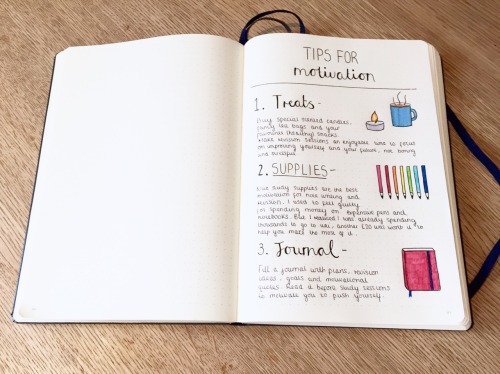 TIPS FOR
motivation
1. Treats -
Buy special scented candles,
fancy tea bags and your
favourite (healthy) snacks.
Make revision sessions an enjoyable time to focus
on improving yourself and your future, not boring
and stressful.
2. SUPPLIES -
Nice study supplies are the best
motivation for note writing and
revision. I used to feel guilty
for spending money on expensive pens and
notebooks. But I realised I was already spending
thousands to go to uni, another £50 was worth it to
help you make the most of it.
3. Journal -
Fill a journal with plans, revision
ideas, goals and motivational
quotes. Read it before study sessions
to motivate you to push yourself.